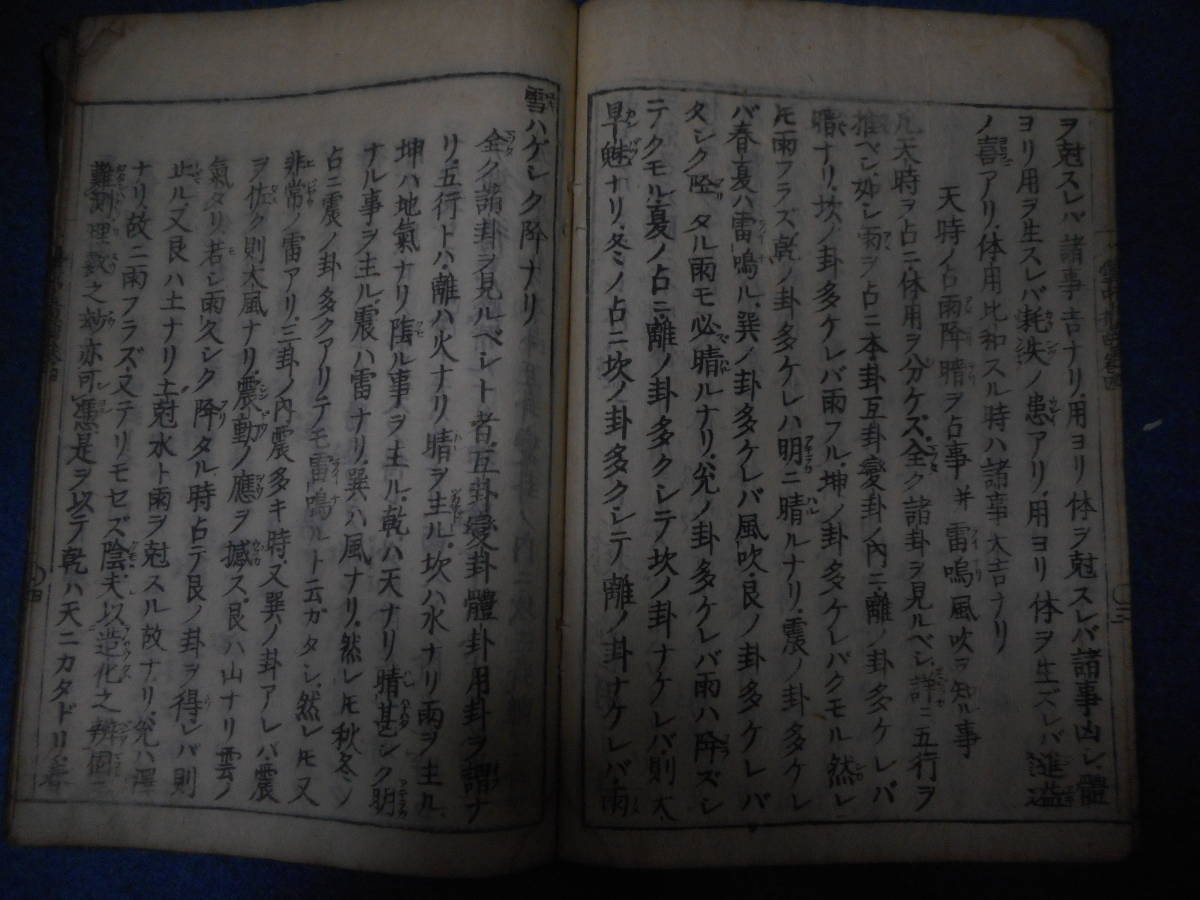 ヲ尅スレハ諸事吉ナリ、用ヨリ体ヲ尅スレバ諸事凶シ、體
ヨリ用ヲ生スレバ耗失ノ患アリ、用ヨリ体ヲ生ズレバ進益
ノ喜アリ、体用比和スル時ハ諸事大吉ナリ
天時ノ占雨降晴ヲ占事 并 雷鳴風吹ヲ知ル事
凡天時ヲ占ニ体用ヲ分ケズ、全ク諸卦ヲ見ルベシ、詳ニ五行ヲ
推ベシ、如シ雨ヲ占ニ本卦互卦変卦ノ内ニ、離ノ卦多ケレバ
晴ナリ、坎ノ卦多ケレバ雨フル、坤ノ卦多ケレバクモル、然レ
𪜈雨フラズ、乾ノ卦多ケレハ明ニ晴ルナリ、震ノ卦多ケレ
バ春夏ハ雷鳴ル、巽ノ卦多ケレバ風吹、艮ノ卦多ケレバ
久シク降タル雨モ必晴ルナリ、兌ノ卦多ケレバ雨ハ降ズシ
テクモル、夏ノ占ニ、離ノ卦多クシテ坎ノ卦ナケレバ則大
旱魃ナリ、冬ノ占ニ坎ノ卦多クシテ離ノ卦ナケレバ雨
雪ハゲシク降ナリ
全ク諸卦ヲ見ルベシト者、互卦變卦體卦用卦ヲ謂ナ
リ五行トハ、離ハ火ナリ晴ヲ主ル、坎ハ水ナリ雨ヲ主ル、
坤ハ地氣ナリ陰ル事ヲ主ル、乾ハ天ナリ晴甚シク明
ナル事ヲ主ル、震ハ雷ナリ、巽ハ風ナリ、然レ𪜈秋冬ノ
占ニ震ノ卦多クアリテモ雷鳴ルト云ガタシ、然レ𪜈又
非常ノ雷アリ、三卦ノ内震多キ時、又巽ノ卦アレバ、震
ヲ佐ク則大風ナリ、震動ノ應ヲ撼ス、艮ハ山ナリ雲ノ
氣タリ、若シ雨久シク降タル時占テ艮ノ卦ヲ得レバ則
止ル又艮ハ土ナリ土尅水ト雨ヲ尅スル故ナリ、兌ハ澤
ナリ、故ニ雨フラズ又テリモセズ陰、夫以造化之辨固
難測理數之妙亦可憑是ヲ以テ乾ハ天ニカタドリ